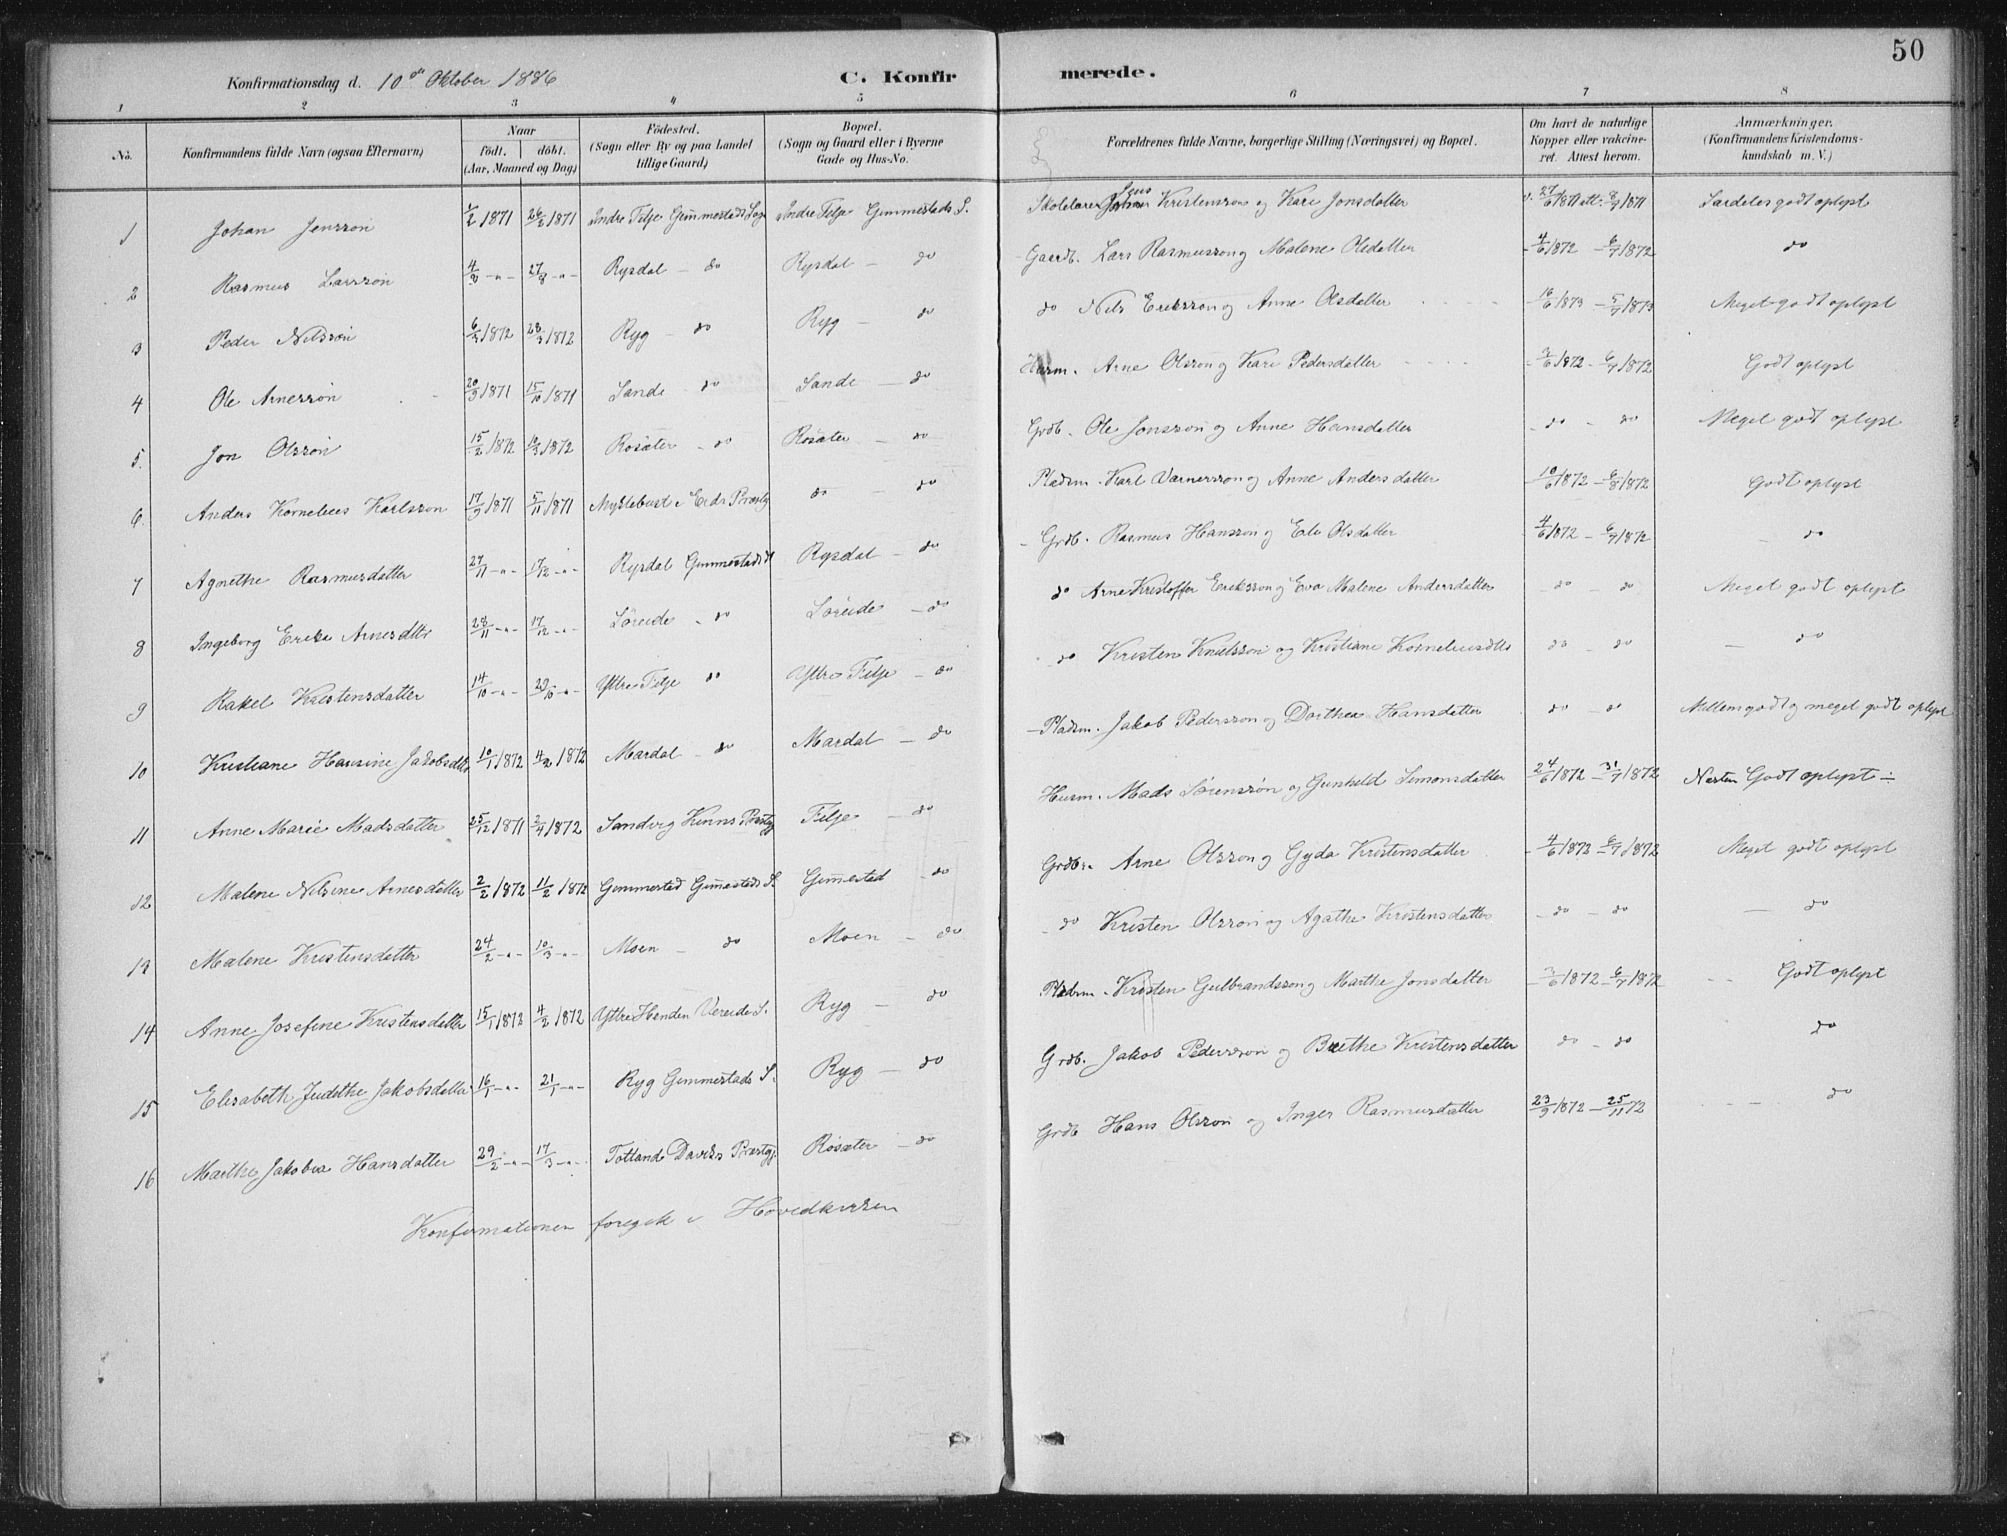 50
Konfirmationsdag d. 10de Oktober 1886 C. Konfirmerede.
1 2 3 4 5 6 7 8
No. Konfirmandens fulde Navn (ogsaa Efternavn) Naar födt. döbt. (Aar, Maaned og Dag) Födested. (Sogn eller By og paa Landet tillige Gaard) Bopæl. (Sogn og Gaard eller i Byerne Gade og Hus-No. Forældrenes fulde Navne, borgerlige Stilling (Næringsvei) og Bopæl. Om havt de naturlige Kopper eller vakcineret. Attest herom. Anmærkninger. (Konfirmandens Kristendomskundskab m. V.)
1 Johan Jensson 1/2 1871 26/2 1871 Indre Felje Gimmestads Sogn Indre Felje Gimmestads S. Skolelærer Jens Kristensson og Kari Jonsdatter v. 27/6 1871 att. 8/7 1871 Særdeles godt oplyst
2 Rasmus Larsson 4/8 -"- 27/8 -"- Rysdal - do Rysdal - do Gaardb. Lars Rasmusson og Malene Oledatter 4/6 1872 - 6/7 1872 do
3 Peder Nilsson 6/2 1872 23/3 1872 Ryg - do Ryg - do do Nils Eriksson og Anne Olsdatter 16/6 1873 - 5/7 1873 Meget godt oplyst
4 Ole Arnesson 20/9 1871 15/10 1871 Sande - do Sande - do Husm. Arne Olsson og Kari Pedersdatter 3/6 1872 - 6/7 1872 Godt oplyst
5. Jon Olsson 15/2 1872 10/3 1872 Rosæter - do Rosæter - do Grdb. Ole Jonsson og Anne Hansdatter - do - do Meget godt oplyst
6 Anders Kornelius Karlsson 17/9 1871 5/11 1871 Myklebust i Eids Præstg do - do Pladsm. Karl Varnersson og Anne Andersdatter 10/6 1872 - 6/8 1872 Godt oplyst
7 Agnethe Rasmusdatter 27/11 -"- 17/12 -"- Rysdal Gimmestads S Rysdal - do Grdb. Rasmus Hansson og Eli Olsdatter 4/6 1872 - 6/7 1872 - do
8 Ingeborg Erika Arnesdtr 28/11 -"- 17/12 -"- Söreide - do Söreide - do do Arne Kristoffer Eriksson og Eva Malene Andersdatter do - do Meget godt oplyst
9 Rakel Kristensdatter 14/10 -"- 29/10 -"- Yttre Felje do Yttre Felje - do do Kristen Knutsson og Kristiane Korneliusdtr do - do - do
10 Kristiane Hansine Jakobsdtr 10/1 1872 4/2 1872 Mardal - do Mardal - do Pladsm. Jakob Pedersson og Dorthea Hansdatter do - do Mellem godt og meget godt oplyst
11 Anne Marie Madsdatter 25/12 1871 2/4 1872 Sandvig Kinns Præstg Felje - do Husm. Mads Sörensson og Gunhild Simonsdatter 24/6 1872 - 31/7 1872 Næsten Godt oplyst
12 Malene Nilsine Arnesdatter 2/2 1872 11/2 1872 Gimmestad Gimmestads S. Gimmestad - do Grdb. Arne Olsson og Gyda Kristensdatter 4/6 1872 - 6/7 1872 Meget godt oplyst
13 Malene Kristensdatter 24/2 -"- 10/3 -"- Moen - do Moen - do - do Kristen Olsson og Agathe Kristensdatter - do - do - do
14 Anne Josefine Kristensdatter 15/1 1872 4/2 1872 Yttre Henden Vereide S. Ryg - do Pladsm. Kristen Gulbrandsson og Marthe Jonsdatter 3/6 1872 - 6/7 1872 Godt oplyst
15 Elisabeth Judithe Jakobsdatter 16/1 -"- 21/1 -"- Ryg Gimmestads S. Ryg - do Grdb. Jakob Pedersson og Brethe Kristensdatter do - do do
16 Marthe Jakobea Hansdatter 29/2 -"- 17/3 -"- Totland Daviks Præstgj. Rosæter - do Grdb Hans Olsson og Inger Rasmusdatter 23/9 1872 - 25/11 72 do
Konfirmationen foregik i Hovedkirken